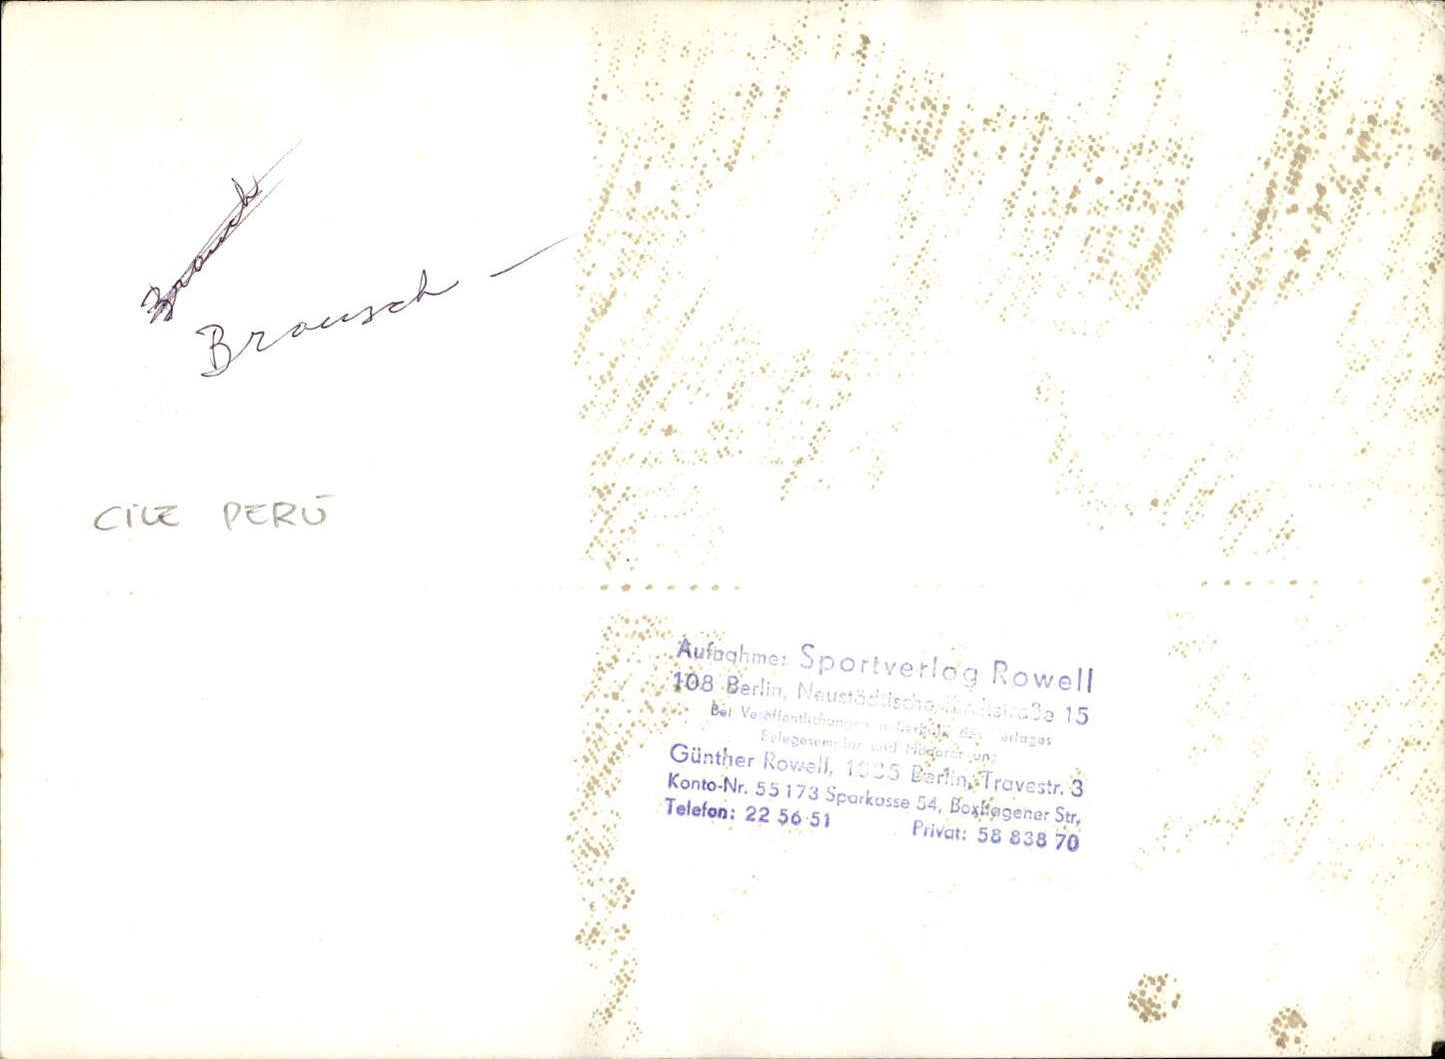 Brausch
Brausch –
CILE PERÚ
Aufnahme: Sportverlag Rowell
108 Berlin, Neustädtische Kirchstraße 15
Bei Veröffentlichungen außerhalb des Verlages
Belegexemplar und Honorar an:
Günther Rowell, 1035 Berlin, Travestr. 3
Konto-Nr. 55173 Sparkasse 54, Boxhagener Str,
Telefon: 22 56 51 Privat: 58 838 70